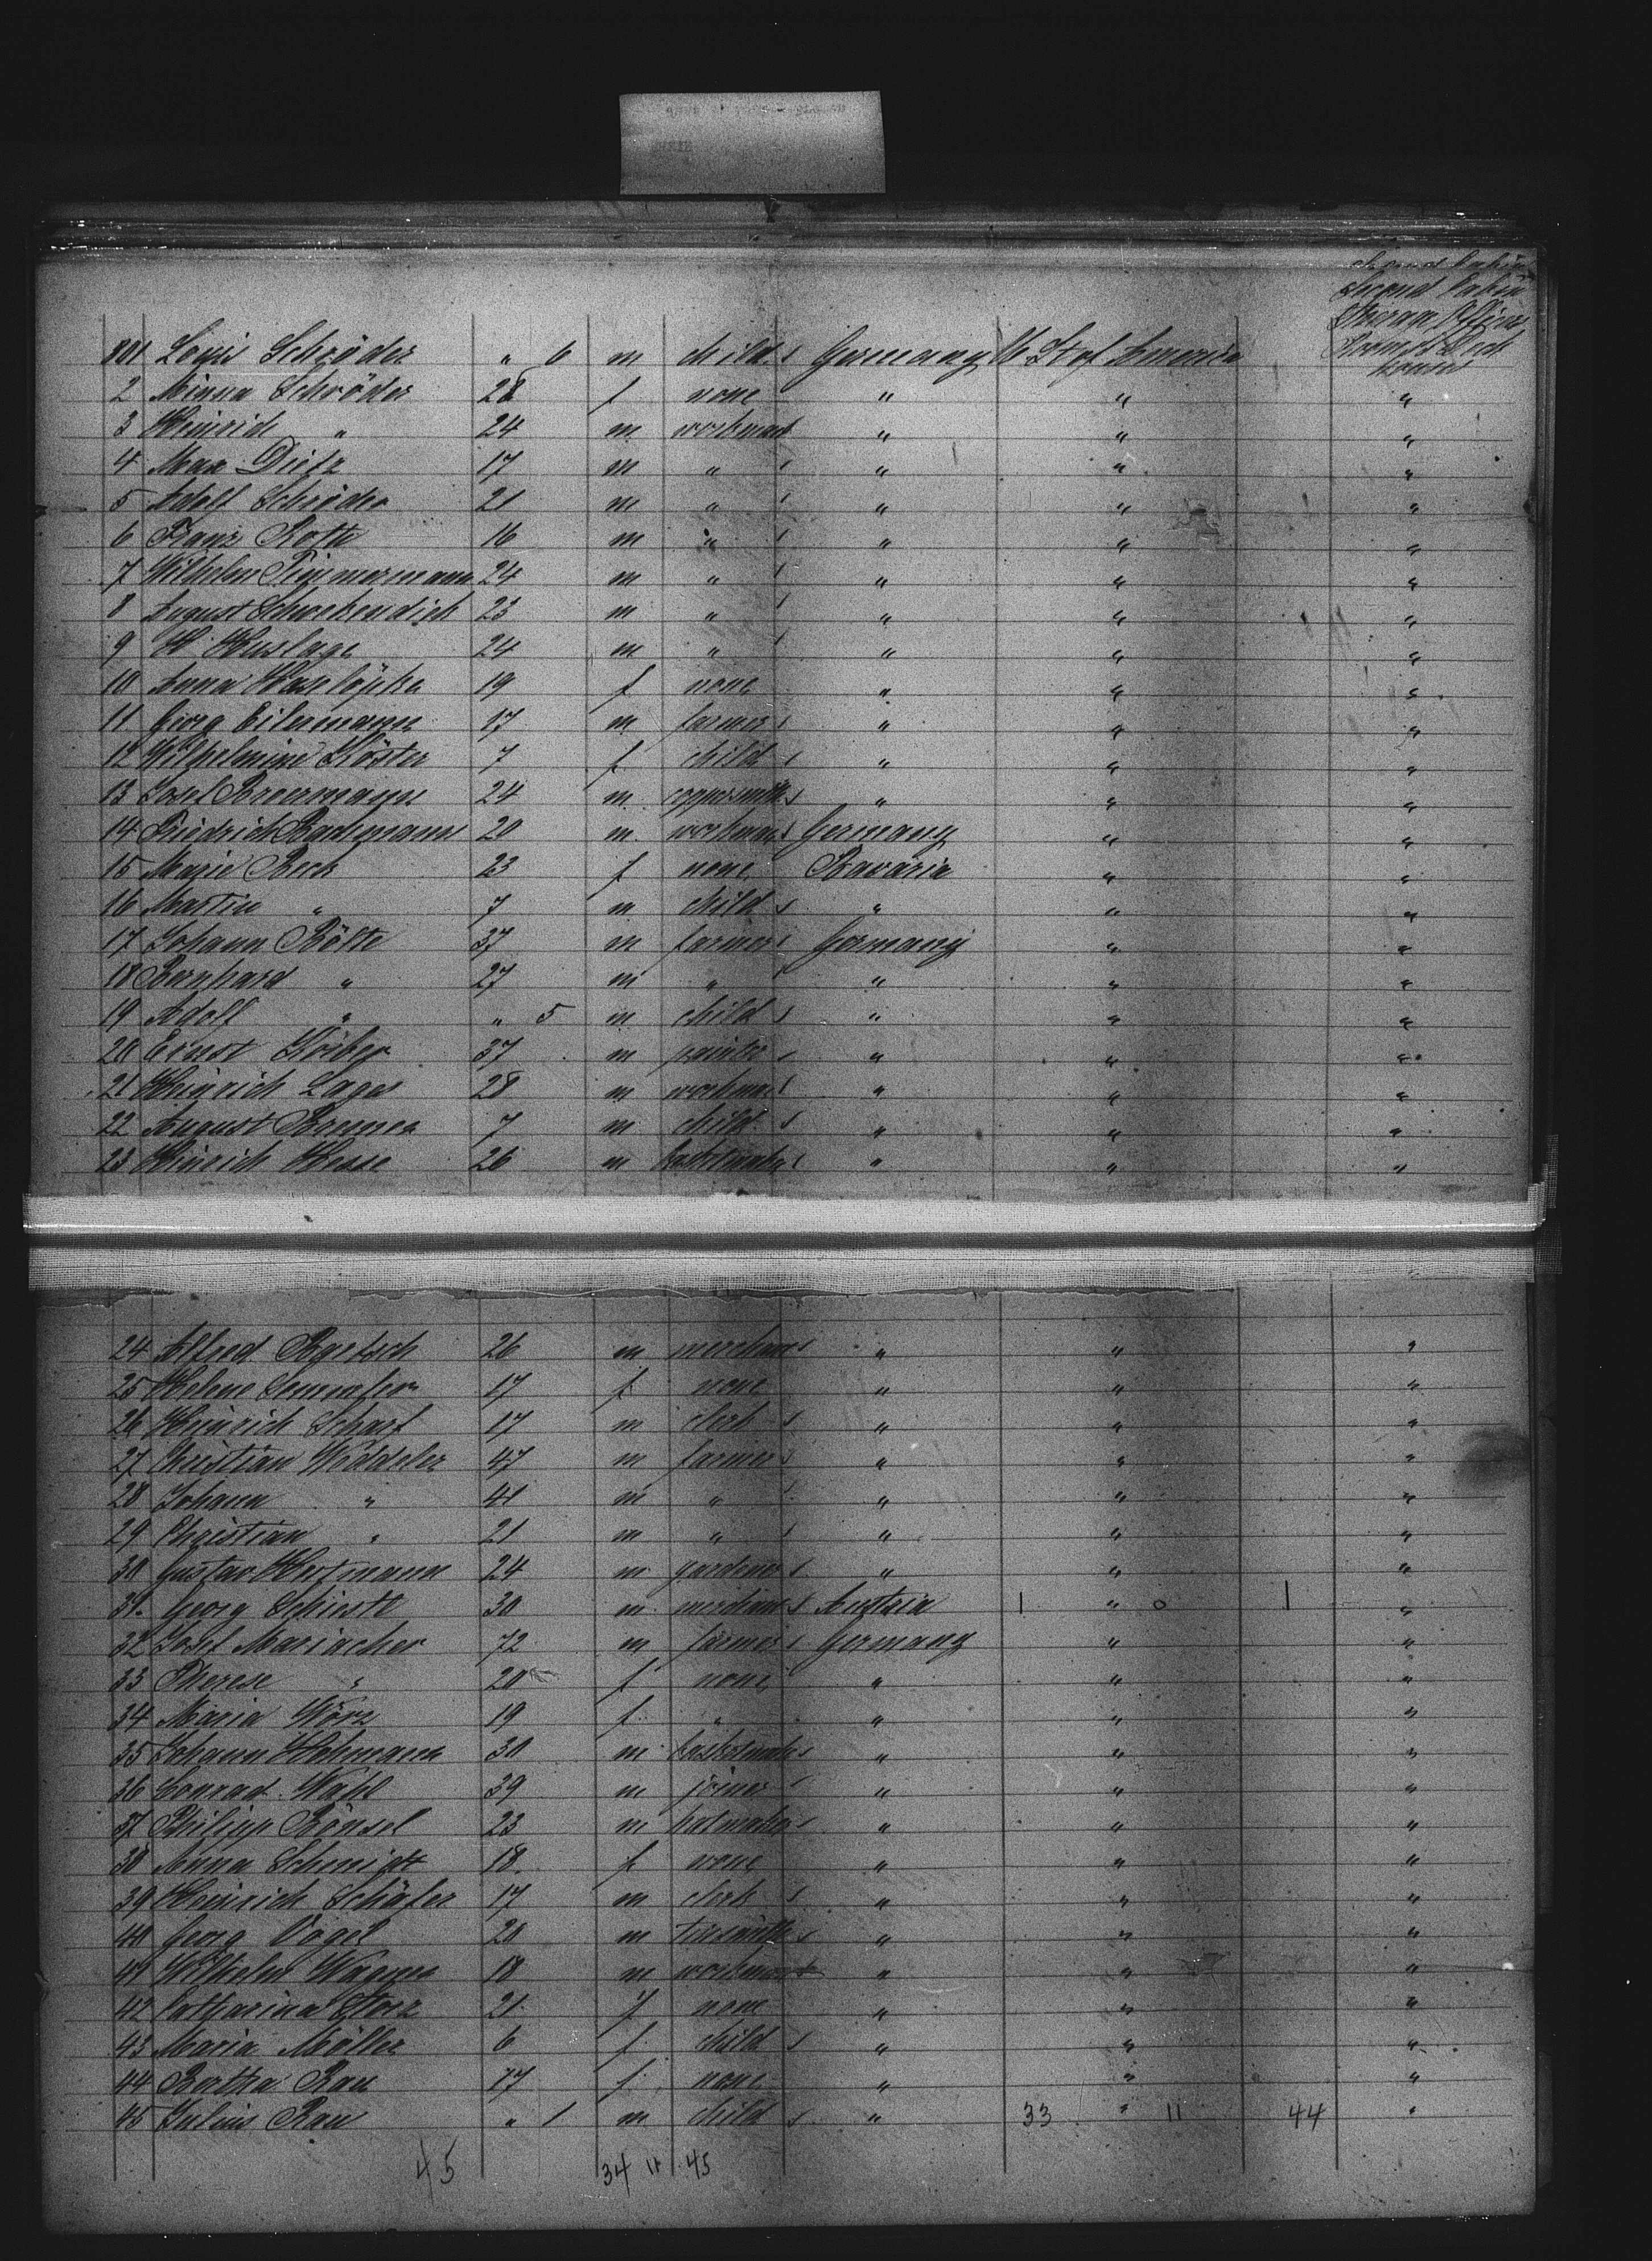 Second Cabin
Steerage Officers
Rooms & Deck
houses
801 Louis Schröder " 6 m child s Germany U. St. of America
2 Minna Schröder 28 f none " " "
3 Heinrich " 24 m workman s " " "
4 Max Dietz 17 m " s " " "
5 Adolf Schröder 21 m " s " " "
6 Franz Roth 16 m " s " " "
7 Wilhelm Timmermann 24 m " s " " "
8 August Schwekendiek 23 m " s " " "
9 H. Huslage 24 m " s " " "
10 Anna 19 f none " " "
11 Georg Eilermann 17 m farmer s " " "
12 Wilhelmine Köster 7 f child s " " "
13 Josef Broermann 24 m coppersmith s " " "
14 Friedrich 20 m workman s Germany " "
15 Marie Beck 23 f none Bavaria " "
16 Martin " 7 m child s " " "
17 Johann Bölte 37 m farmer s Germany " "
18 Bernhard " 27 m " s " " "
19 Adolf " " 5 m child s " " "
20 Ernst 37 m painter s " " "
21 Heinrich Lages 28 m workman s " " "
22 August Bremer 7 m child s " " "
23 Heinrich Hesse 26 m s " " "
24 Alfred 26 m merchant s " " "
25 Helene 17 f none " " "
26 Heinrich Scharf 17 m clerk s " " "
27 Christian Weddeler 47 m farmer s " " "
28 Johann " 41 m " s " " "
29 Christian " 21 m " s " " "
30 Gustav 24 m gardener s " " "
31 Georg Schiestl 30 m merchant s Austria 1 " 0 1 "
32 Josef Mariacher 72 m farmer s Germany " "
33 Therese " 20 f none " " "
34 Maria Wörz 19 f " " " "
35 Johann Hohmann 30 m s " " "
36 Conrad Wahl 39 m joiner s " " "
37 Philipp Bönsel 23 m hatmaker s " " "
38 Anna Schmidt 18 f none " " "
39 Heinrich Schäfer 17 m clerk s " " "
40 Georg Vogel 20 m tinsmith s " " "
41 Wilhelm Wagner 18 m workman s " " "
42 Catharina Storz 21 f none " " "
43 Maria Möller 6 f child s " " "
44 Bertha Rau 77 f none " " "
45 Julius Rau " 1 m child s " 33 " 11 44 "
45 34 11 45